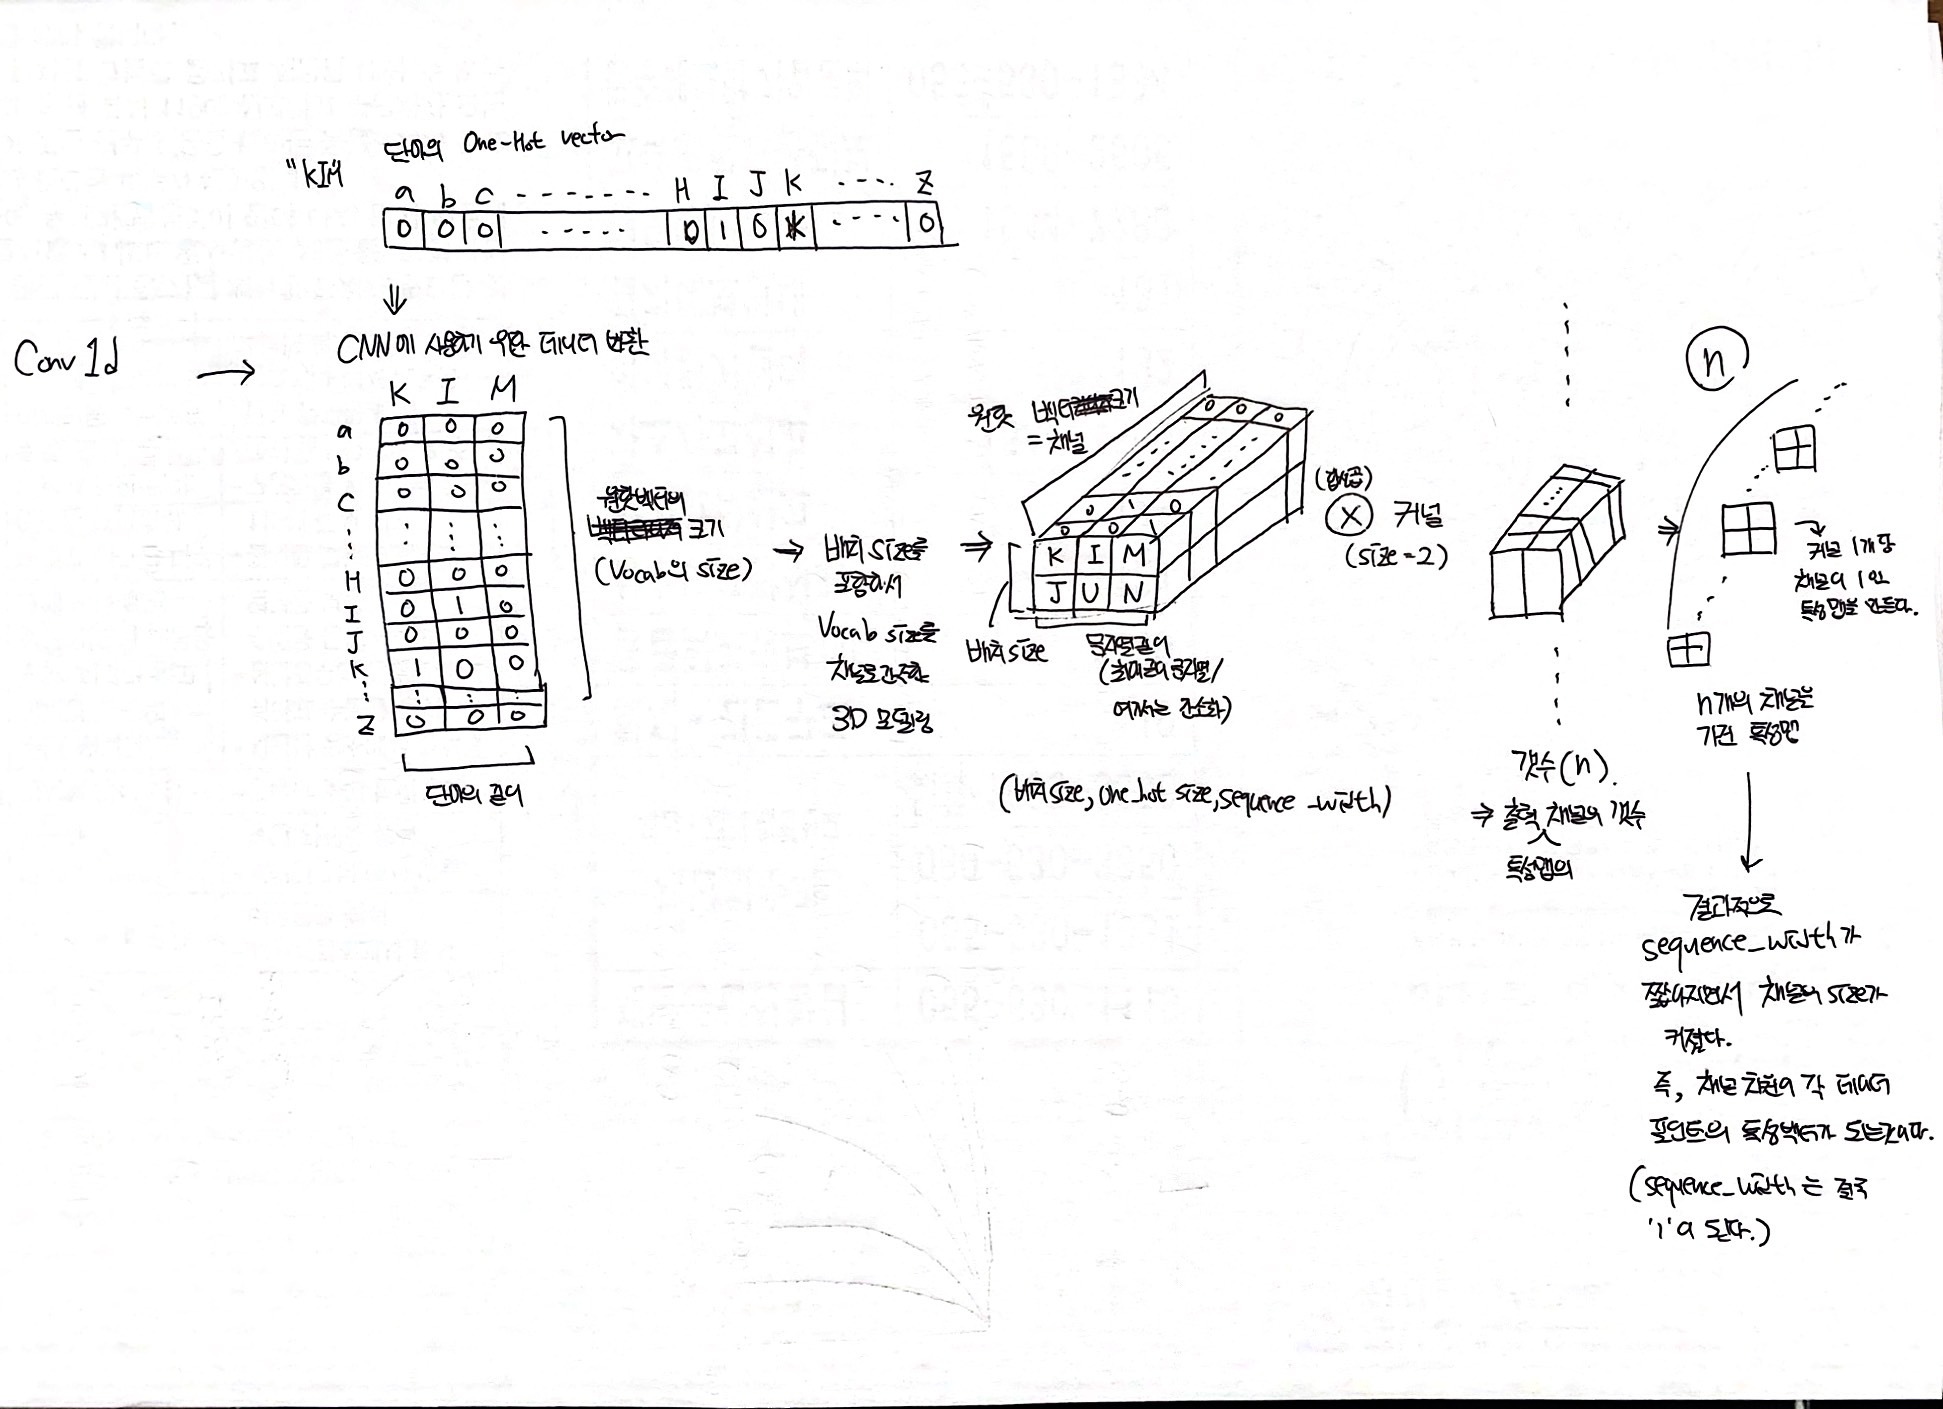 "KIM"
단어의 One-Hot vector
a b c ------- H I J K ---- Z
0 0 0 ----- 0 1 0 ---- 0
Conv 1d
CNN에 사용하기 위한 데이터 변환
K I M
a 0 0 0
b 0 0 0
c 0 0 0
H 0 0 0
I 0 1 0
J 0 0 0
K 1 0 0
Z 0 0 0
단어의 길이
원핫벡터의
크기
(Vocab의 size)
배치 size를
포함해서
Vocab size를
채널로 간주한
3D 모델링
원핫 벡터 크기
= 채널
0 0 0
0 1 0
0 0 1
K I M
J U N
배치 size
문자열길이
(최대길이 문자열/
여기서는 간소화)
(배치size, one_hot size, sequence_width)
(합성곱)
X 커널
(size=2)
갯수(n).
⇒ 출력 채널의 갯수
특성맵의
n
커널 1개당
채널이 1인
특성맵을 만든다.
n개의 채널을
가진 특성맵
결과적으로
sequence_width가
짧아지면서 채널의 size가
커졌다.
즉, 채널 차원이 각 데이터
포인트의 특성벡터가 되는것이다.
(sequence_width는 결국
'1'이 된다.)